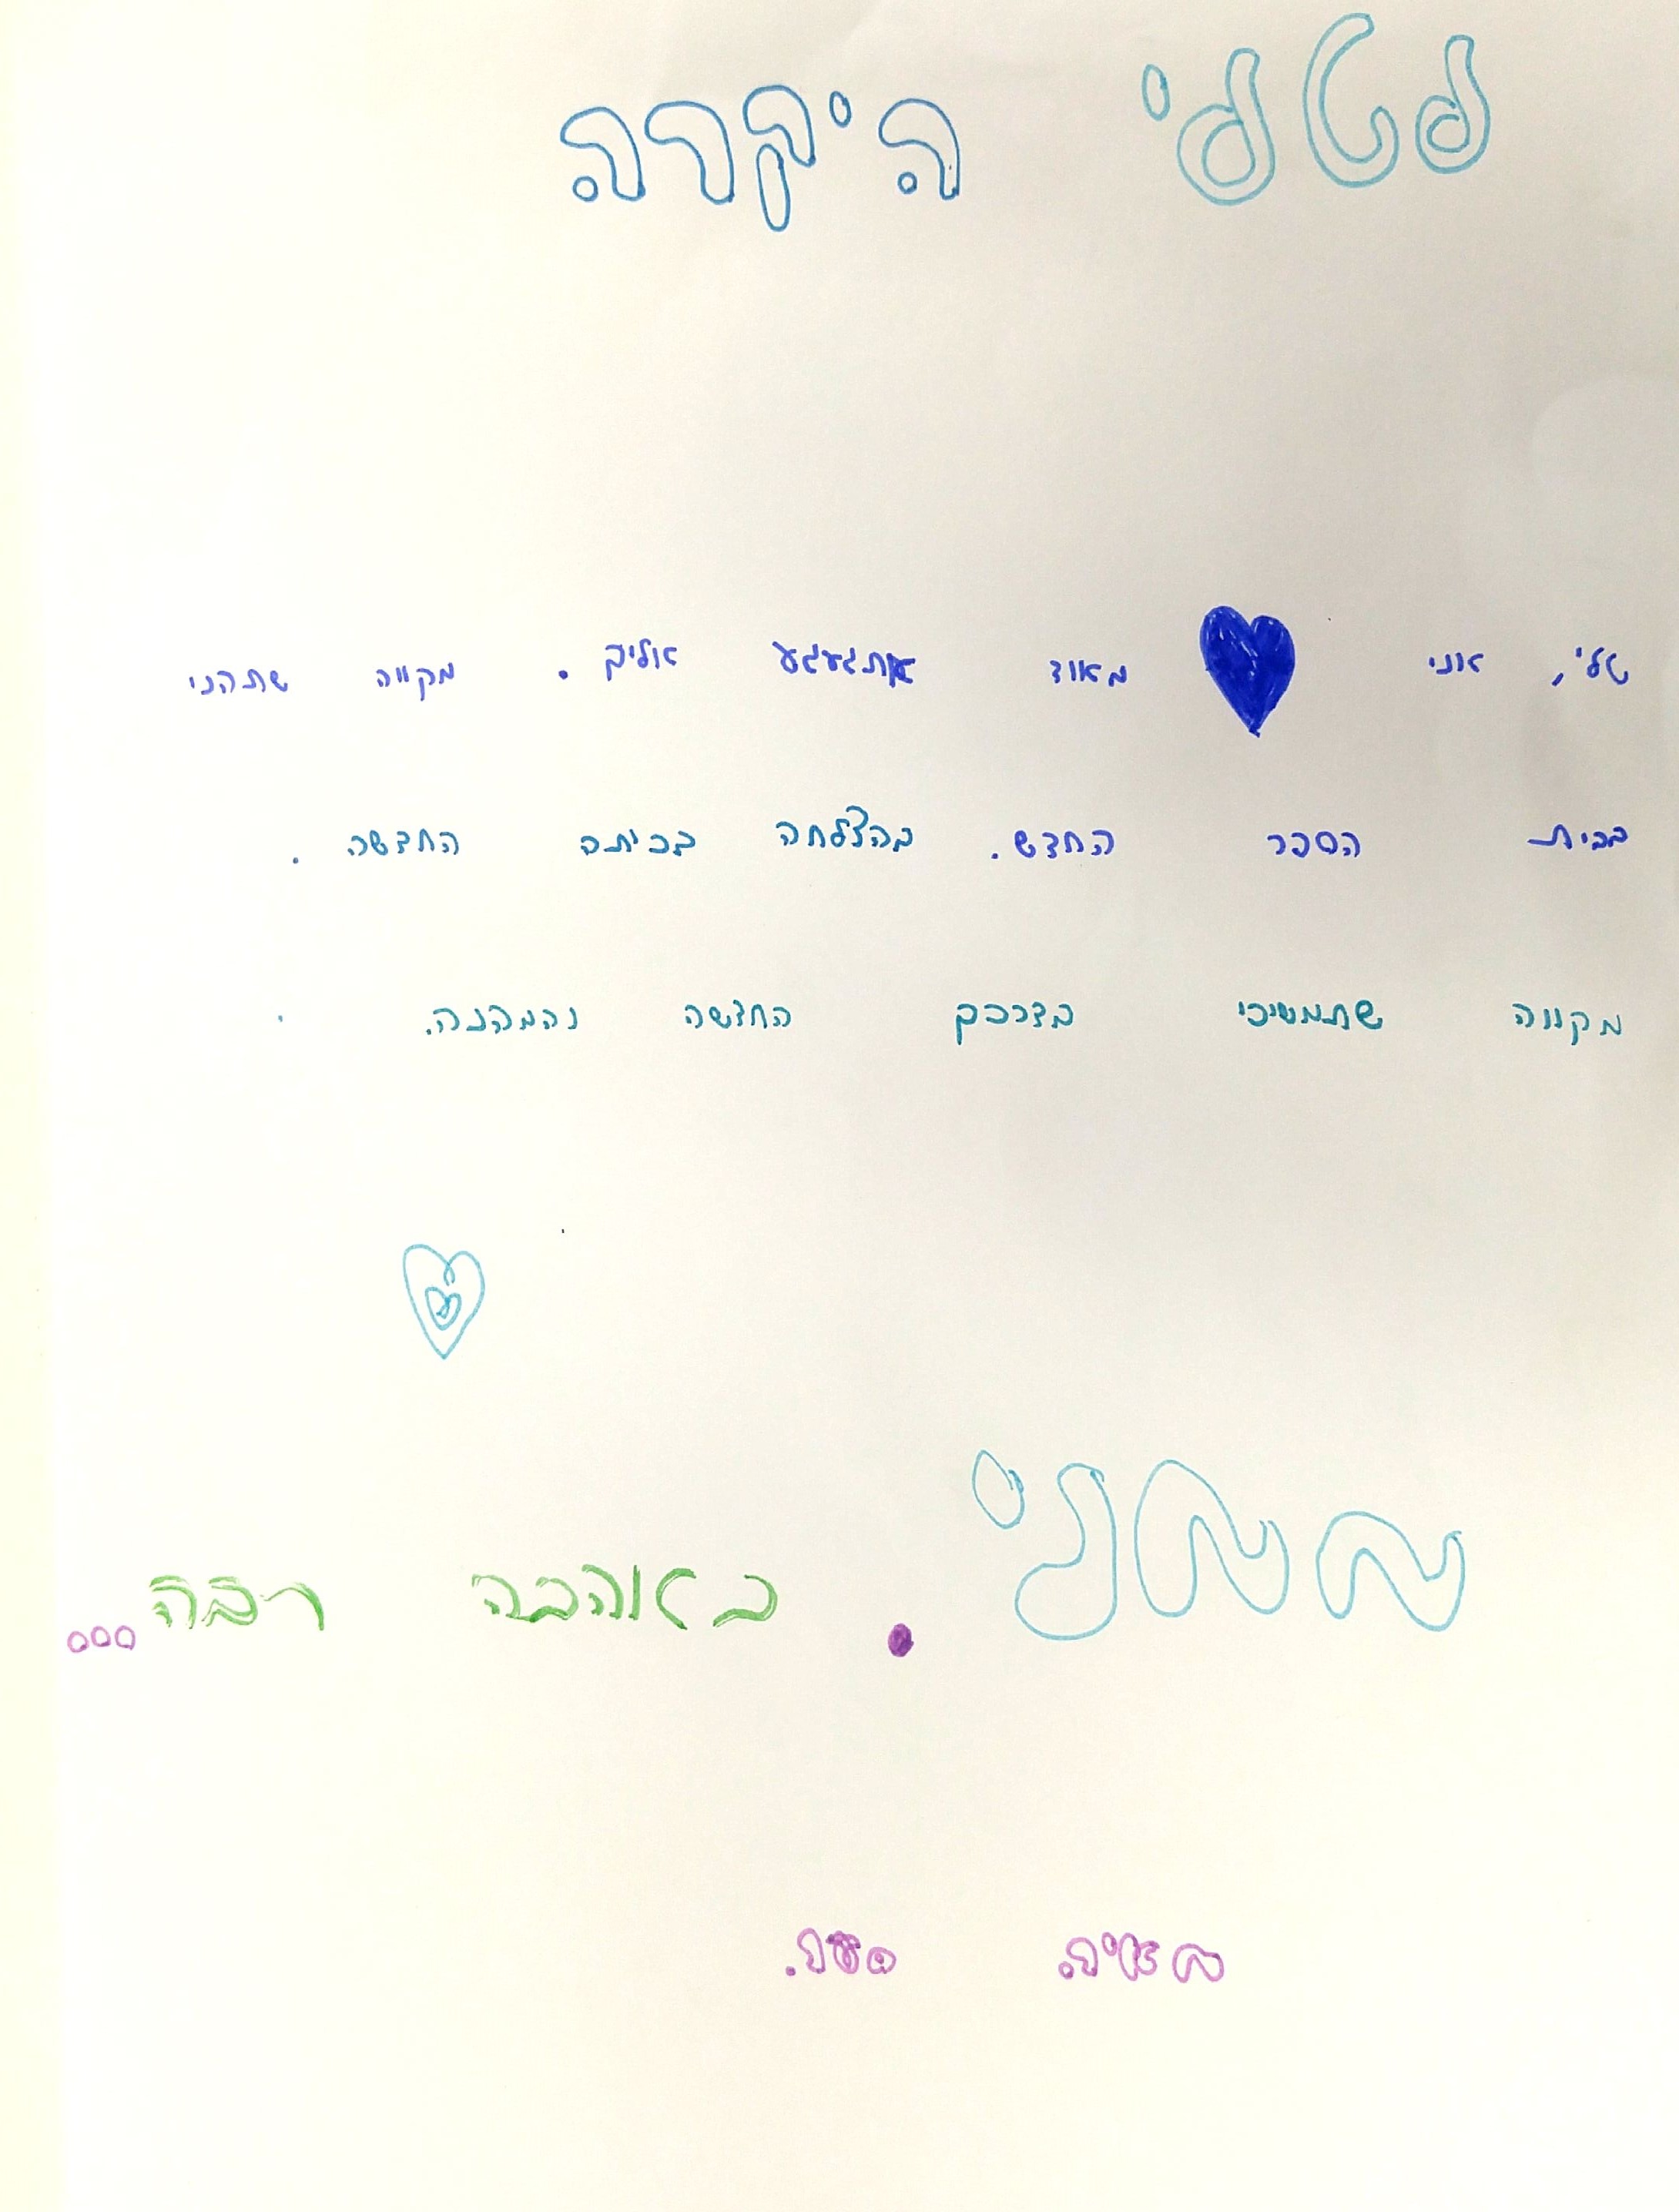 היקרה
טלי, אני מאוד אתגעגע אליך. מקווה שתהני
בבית הספר החדש. בהצלחה בכיתה החדשה.
מקווה שתמשיכי בדרכך החדשה והמהנה.
ממני. באהבה רבה...